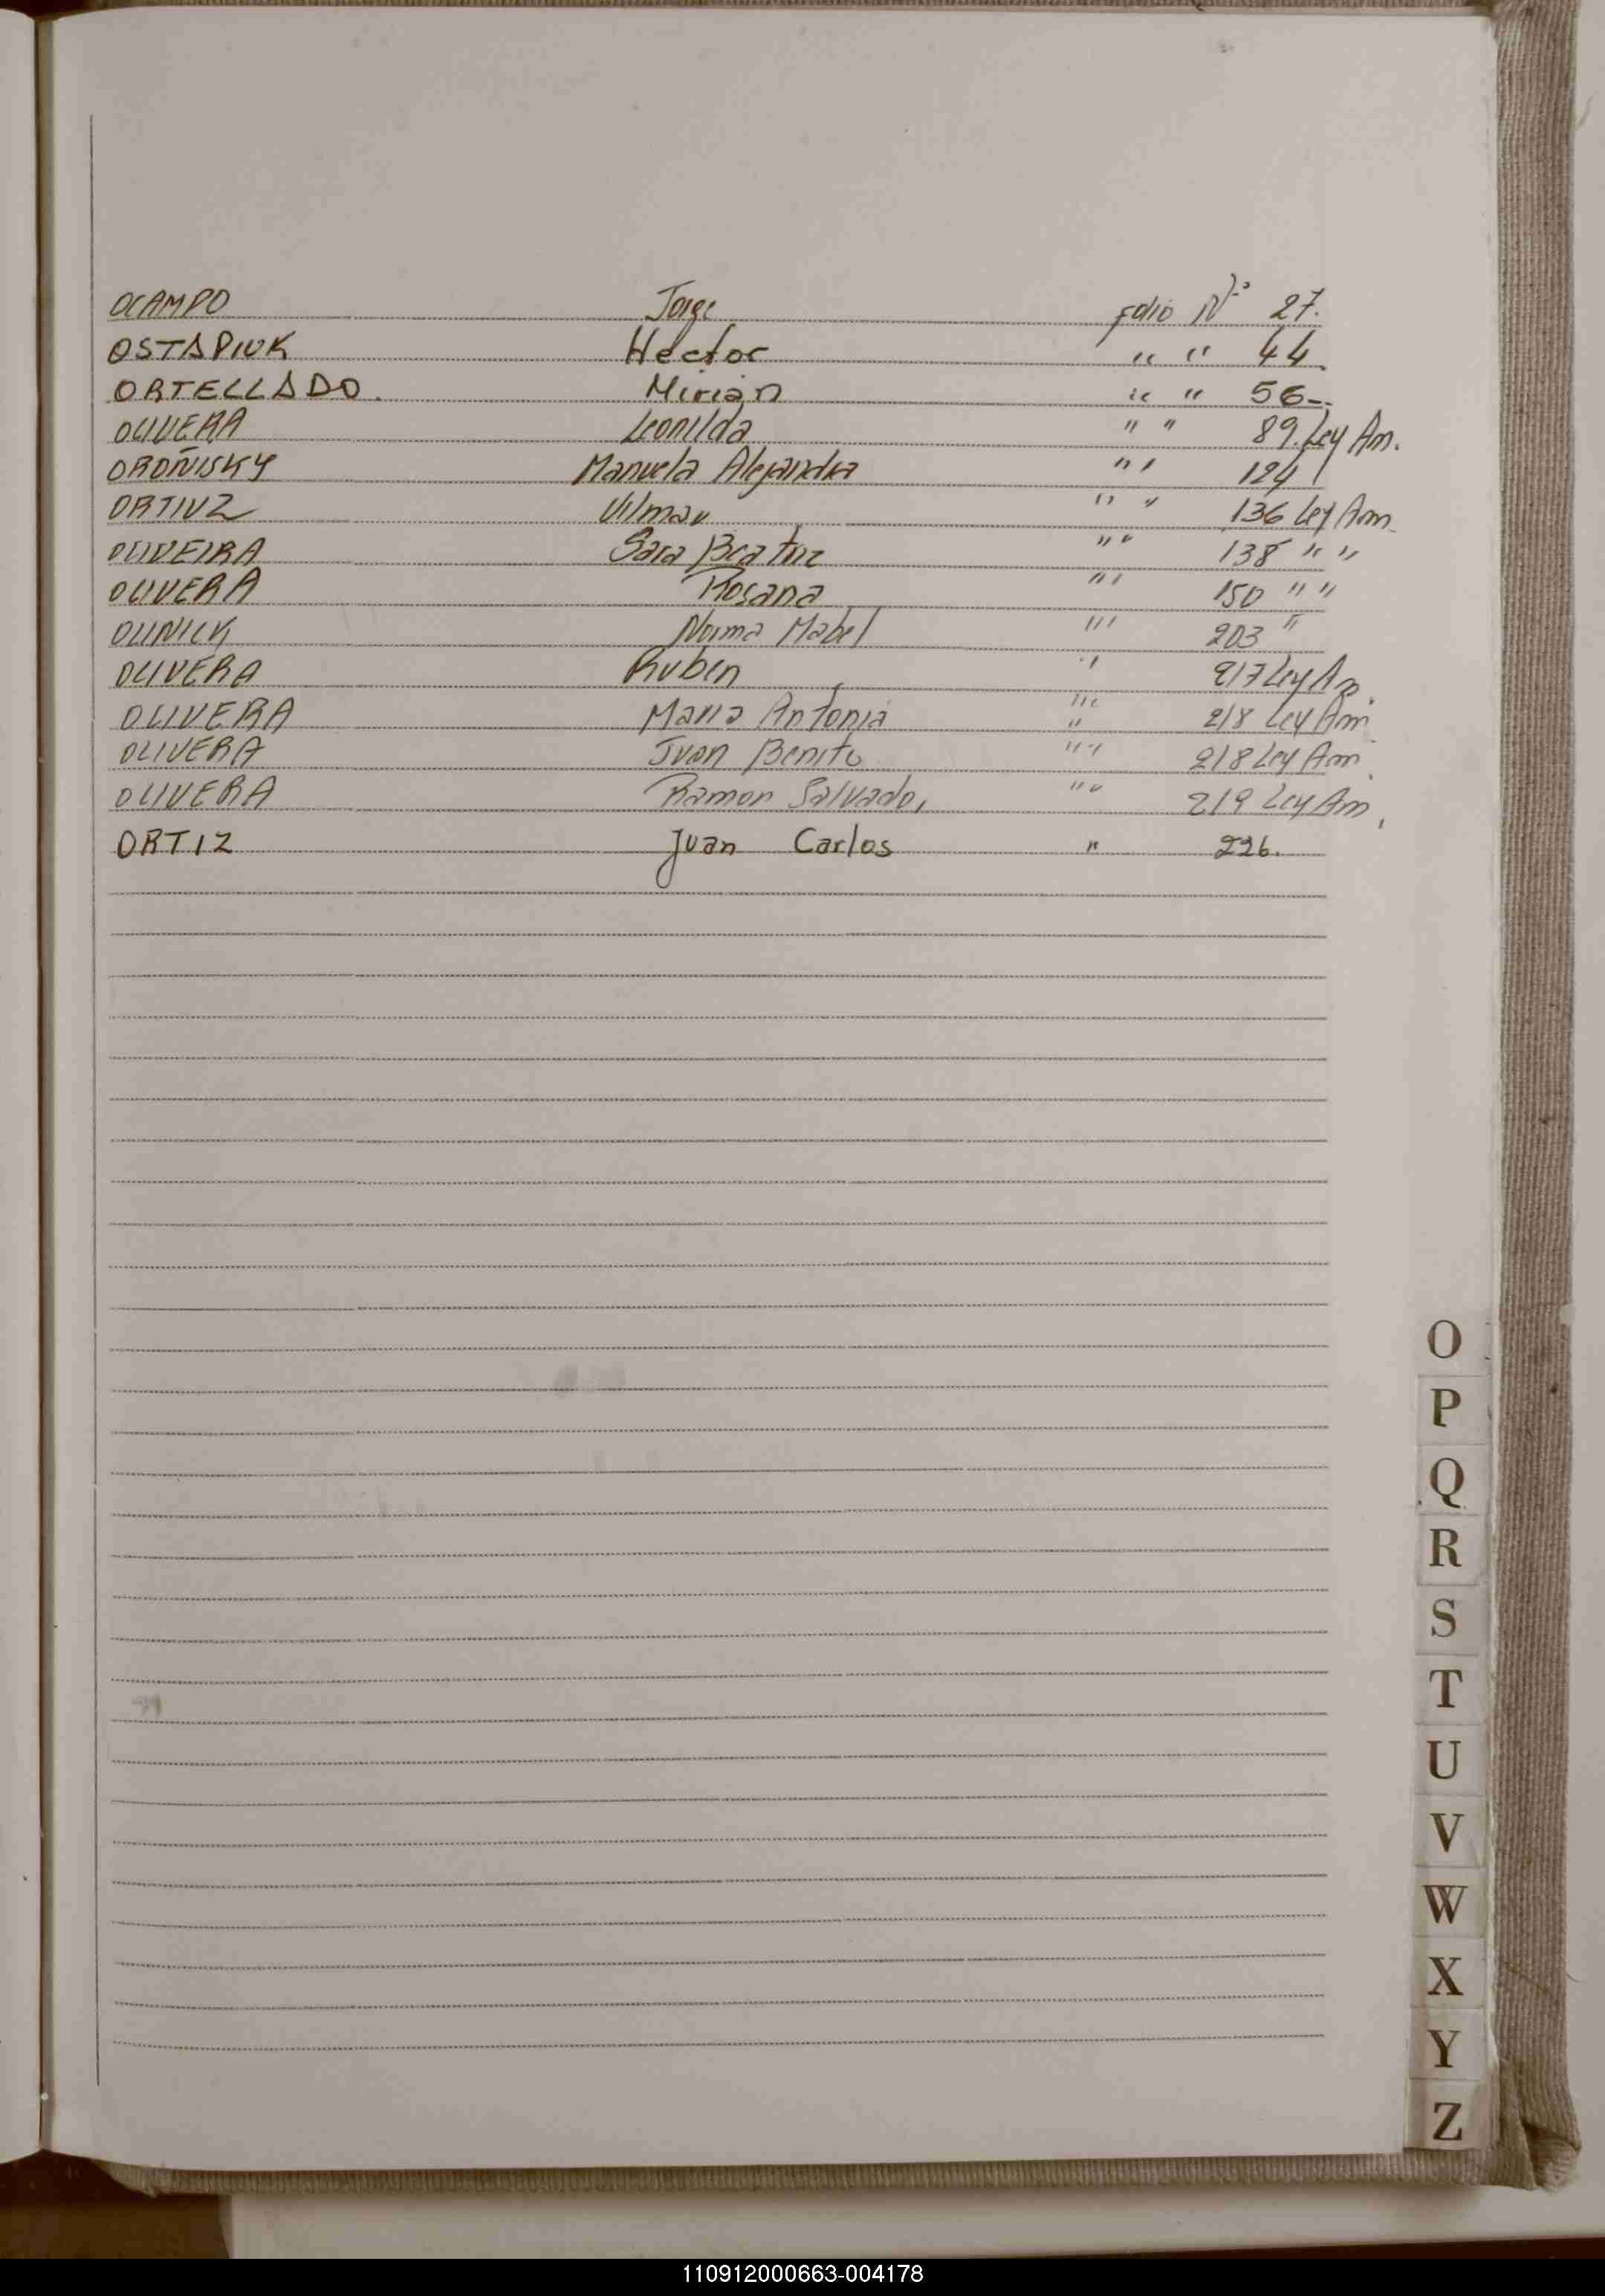 OCAMPO Jorge Folio Nº 27.
OSTAPIUK Hector " " 44.
ORTELLADO. Mirian " " 56-.
OLIVERA Leonilda " " 89. Ley Am.
OROÑISKY Manuela Alejandra " " 124
ORTIUZ Vilmar " " 136 Ley Am.
OLIVEIRA Sara Beatriz " " 138 " "
OLIVERA Rosana " " 150 " "
OLINICK Norma Mabel " " 203 "
OLIVERA Ruben " 217 Ley Am.
OLIVERA Maria Antonia " " 218 Ley Am.
OLIVERA Juan Benito " " 218 Ley Am.
OLIVERA Ramon Salvador " " 219 Ley Am.
ORTIZ Juan Carlos " 226.
O
P
Q
R
S
T
U
V
W
X
Y
Z
110912000663-004178